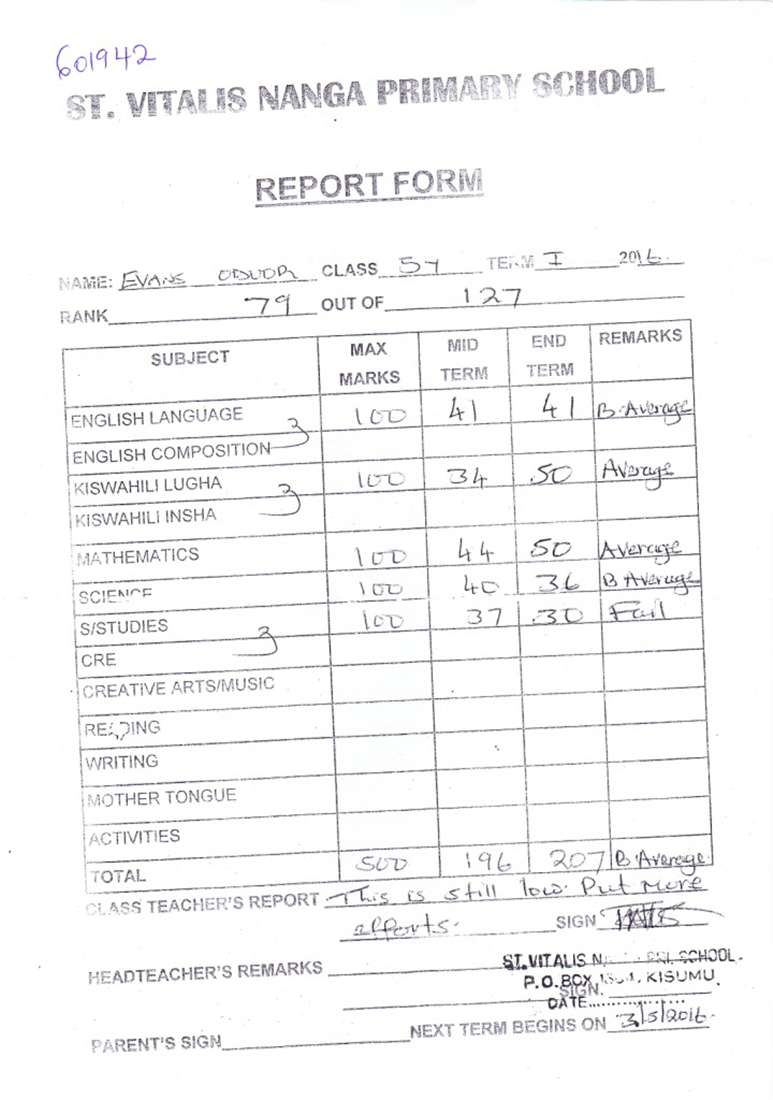 601942
ST. VITALIS NANGA PRIMARY SCHOOL
REPORT FORM
NAME: EVANS ODUOR CLASS 5Y TERM I 2016
RANK 79 OUT OF 127
SUBJECT MAX MARKS MID TERM END TERM REMARKS
ENGLISH LANGUAGE 100 41 41 B. Average
ENGLISH COMPOSITION
KISWAHILI LUGHA 100 34 50 Average
KISWAHILI INSHA
MATHEMATICS 100 44 50 Average
SCIENCE 100 40 36 B Average
S/STUDIES 100 37 30 Fail
CRE
CREATIVE ARTS/MUSIC
READING
WRITING
MOTHER TONGUE
ACTIVITIES
TOTAL 500 196 207 B Average
CLASS TEACHER'S REPORT This is still low. Put more
efforts. SIGN
ST. VITALIS PRI. SCHOOL.
HEADTEACHER'S REMARKS
P.O. BOX KISUMU.
SIGN.
DATE
NEXT TERM BEGINS ON 3/5/2016
PARENT'S SIGN